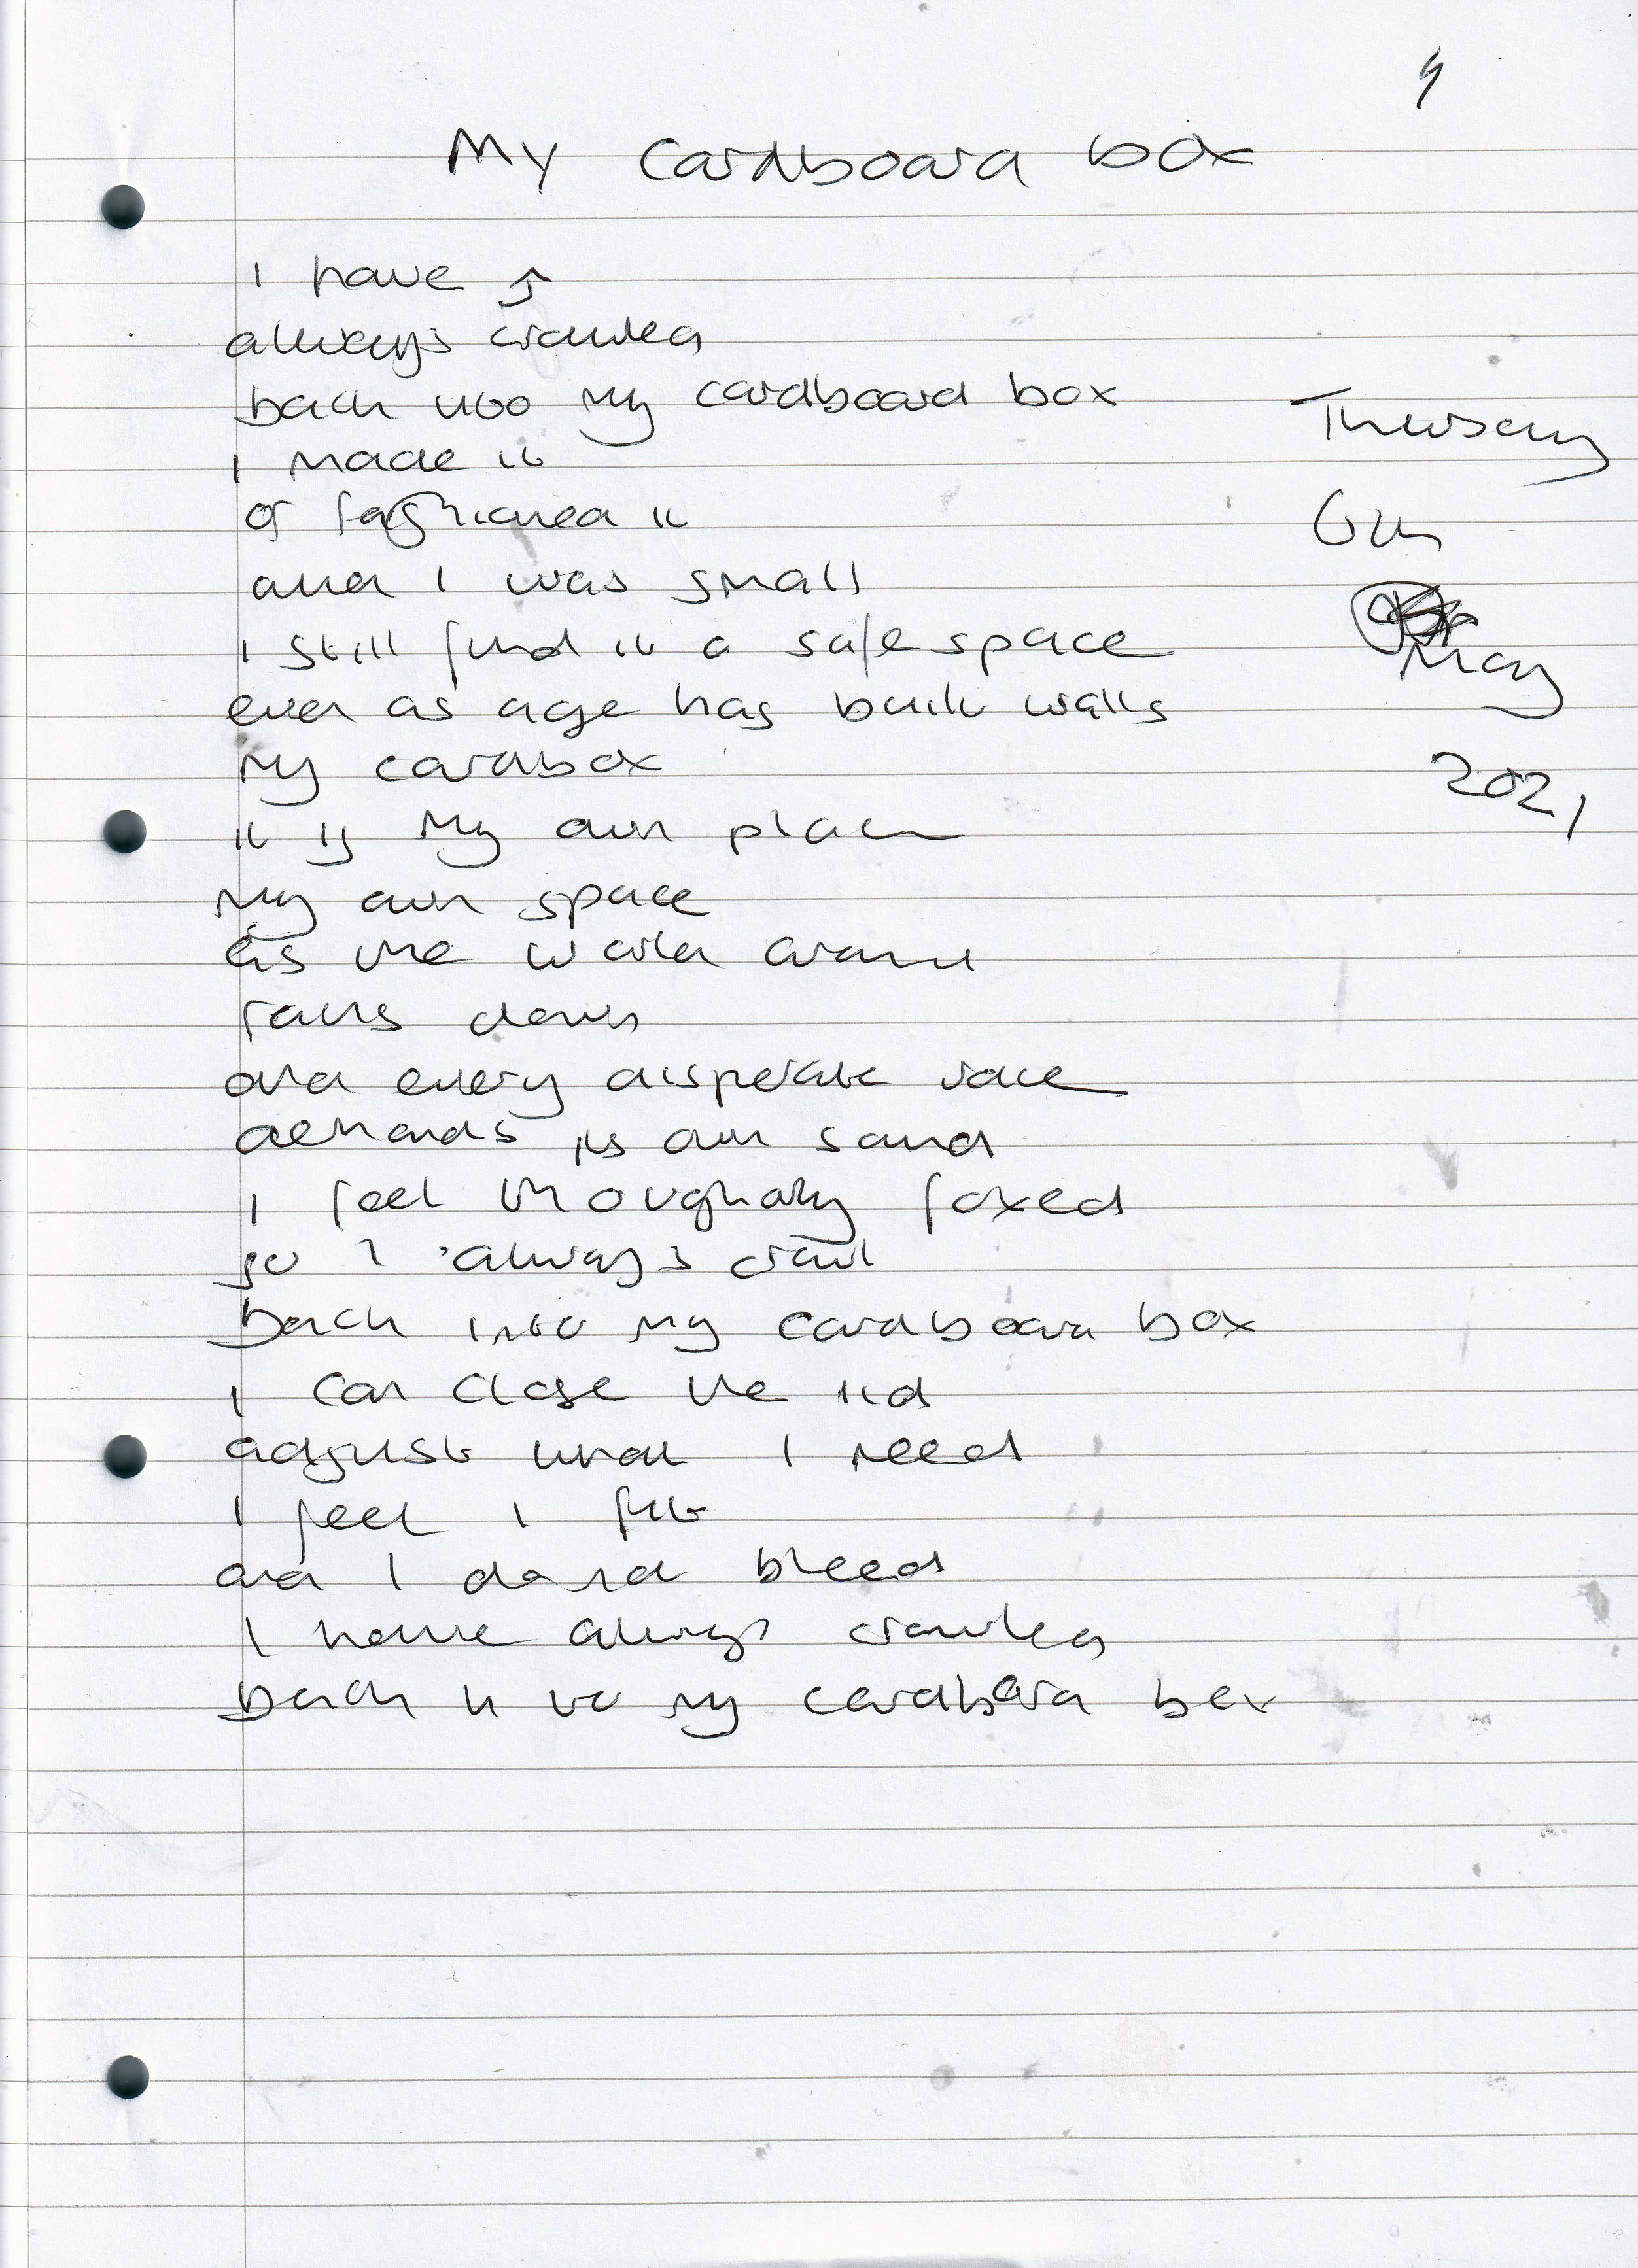 9
My cardboard box
I have
always crawled
back into my cardboard box
I made it
or fashioned it
and I was small
I still find it a safe space
even as age has built walls
my cardbox
it is my own place
my own space
as the world around
falls down
and every disperate race
demands its own sound
I feel thoroughly foxed
so I always crawl
back into my cardboard box
I can close the lid
adjust what I need
I feel I fit
and I do not bleed
I have always crawled
back into my cardboard box
Thursday
6th
May
2021